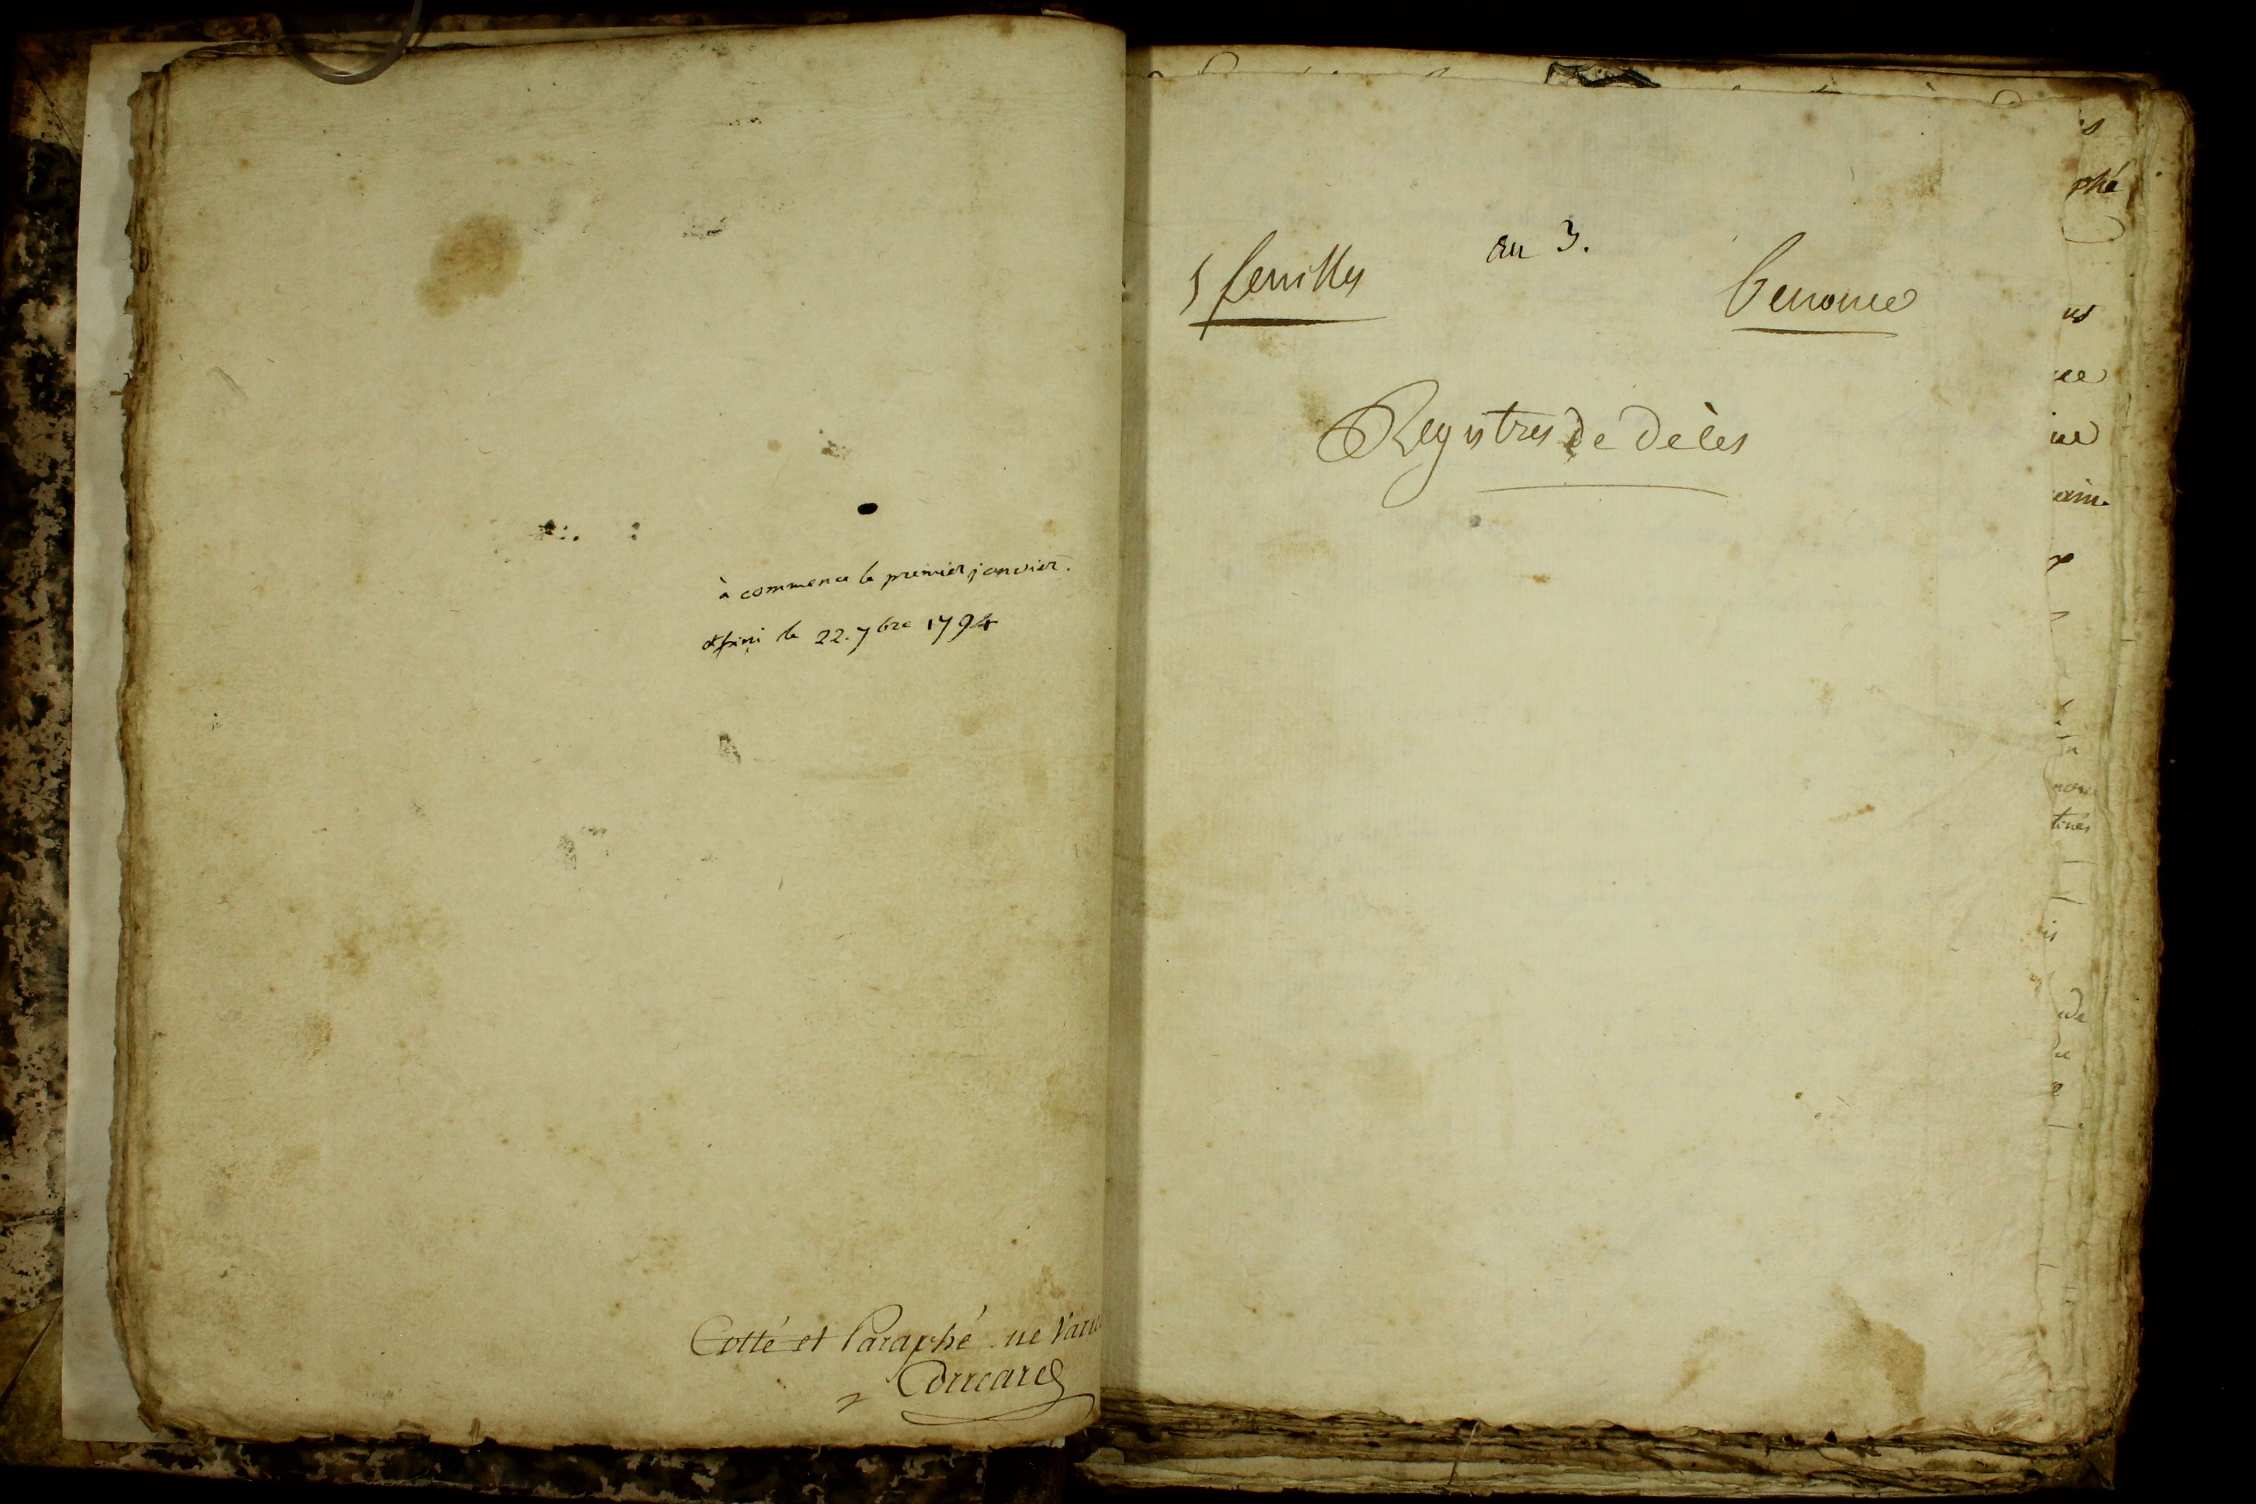 à commencé le premier janvier.
et fini le 22. 7bre 1794
Cotté et Paraphé ne Varie
5 feuilles
an 3.
Registres de décès
phé